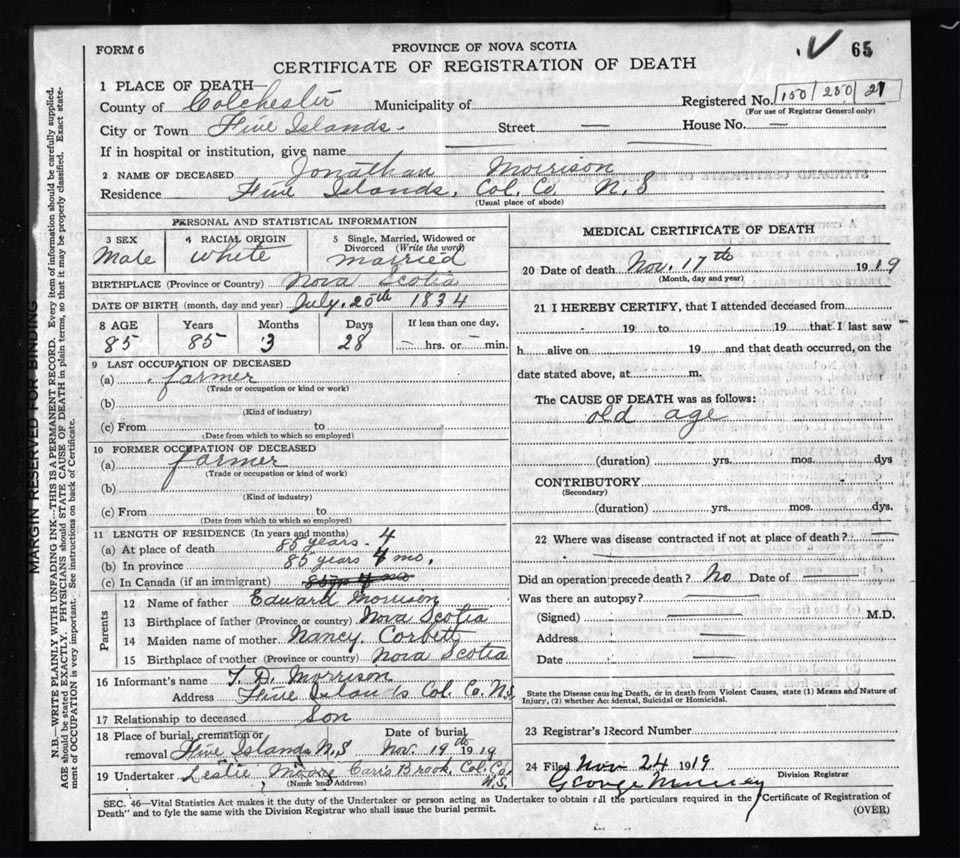 FORM 6
PROVINCE OF NOVA SCOTIA
65
CERTIFICATE OF REGISTRATION OF DEATH
1 PLACE OF DEATH—
County of Colchester Municipality of
Registered No. 150/250/21
(For use of Registrar General only)
City or Town Five Islands. Street — House No. —
If in hospital or institution, give name
2 NAME OF DECEASED Jonathan Morrison
Residence Five Islands, Col. Co. N.S
(Usual place of abode)
PERSONAL AND STATISTICAL INFORMATION
3 SEX Male
4 RACIAL ORIGIN White
5 Single, Married, Widowed or Divorced (Write the word) married
BIRTHPLACE (Province or Country) Nova Scotia
DATE OF BIRTH (month, day and year) July. 20th 1834
8 AGE Years Months Days If less than one day,
85 85 3 28 — hrs. or — min.
9 LAST OCCUPATION OF DECEASED
(a) farmer
(Trade or occupation or kind or work)
(b)
(Kind of industry)
(c) From to
(Date from which to which so employed)
10 FORMER OCCUPATION OF DECEASED
(a) farmer
(Trade or occupation or kind of work)
(b)
(Kind of industry)
(c) From to
(Date from which to which so employed)
11 LENGTH OF RESIDENCE (In years and months)
(a) At place of death 85 years - 4
(b) In province 85 years 4 mo.
(c) In Canada (if an immigrant)
Parents
12 Name of father Edward Morrison
13 Birthplace of father (Province or country) Nova Scotia
14 Maiden name of mother Nancy Corbett
15 Birthplace of mother (Province or country) Nova Scotia
16 Informant's name T. D. Morrison
Address Five Islands Col. Co. N.S.
17 Relationship to deceased Son
18 Place of burial, cremation or removal Five Islands N.S
Date of burial Nov. 19th 1919
19 Undertaker Leslie Carrs Brook, Col. Co. N.S.
(Name and Address)
MEDICAL CERTIFICATE OF DEATH
20 Date of death Nov. 17th 1919
(Month, day and year)
21 I HEREBY CERTIFY, that I attended deceased from
19 to 19 that I last saw
h alive on 19 and that death occurred, on the
date stated above, at m.
The CAUSE OF DEATH was as follows:
old age
(duration) yrs. mos. dys
CONTRIBUTORY
(Secondary)
(duration) yrs. mos. dys.
22 Where was disease contracted if not at place of death? —
Did an operation precede death? No Date of —
Was there an autopsy? —
(Signed) — M.D.
Address —
Date —
State the Disease causing Death, or in death from Violent Causes, state (1) Means and Nature of
Injury, (2) whether Accidental, Suicidal or Homicidal.
23 Registrar's Record Number
24 Filed Nov 24 1919
George Murray
Division Registrar
SEC. 46—Vital Statistics Act makes it the duty of the Undertaker or person acting as Undertaker to obtain all the particulars required in the "Certificate of Registration of
Death" and to fyle the same with the Division Registrar who shall issue the burial permit.
(OVER)
MARGIN RESERVED FOR BINDING
N.B.—WRITE PLAINLY WITH UNFADING INK—THIS IS A PERMANENT RECORD. Every item of information should be carefully supplied.
AGE should be stated EXACTLY. PHYSICIANS should STATE CAUSE OF DEATH in plain terms, so that it may be properly classified. Exact state-
ment of OCCUPATION is very important. See instructions on back of Certificate.